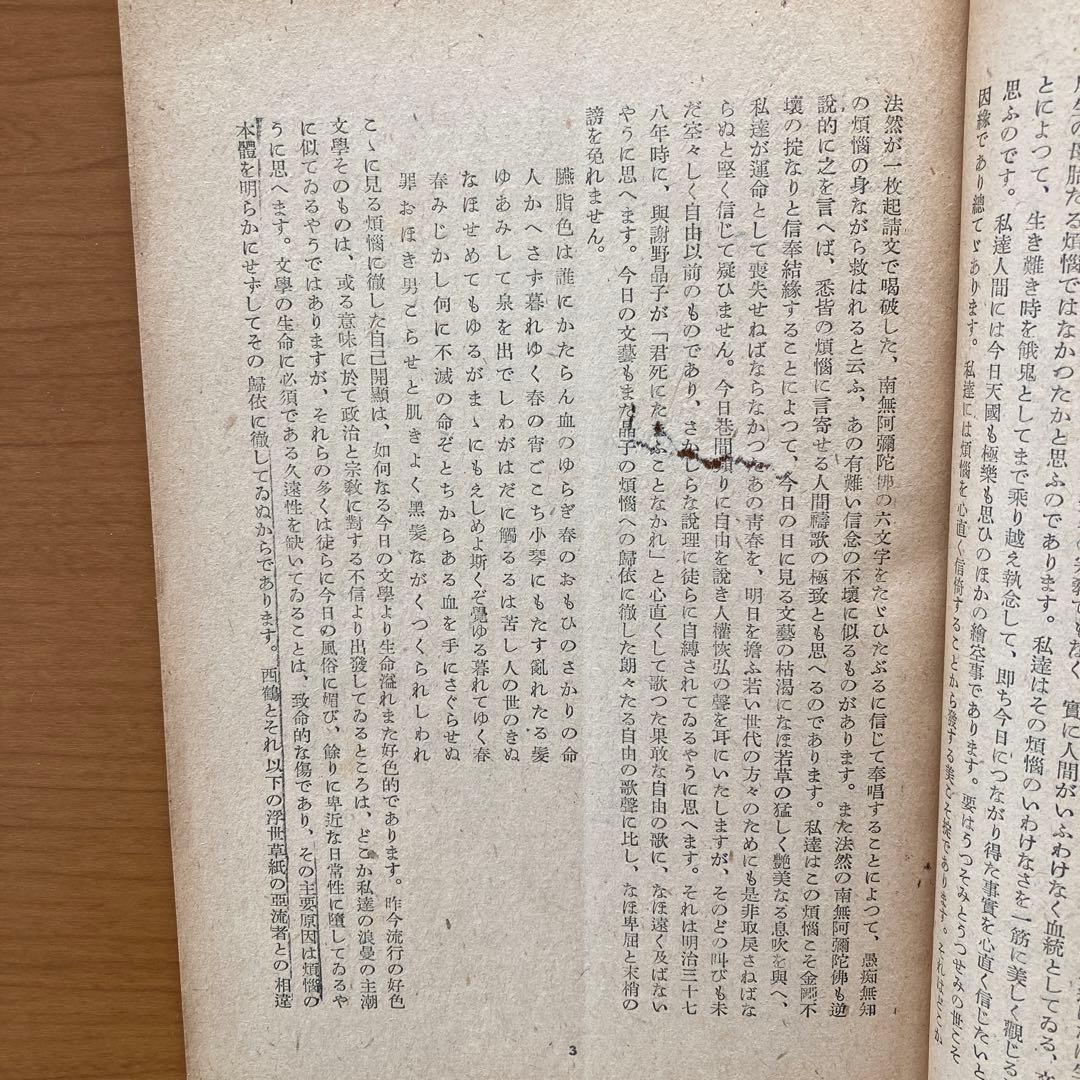 とによつて、生き難き時を餓鬼としてまで乘り越え執念して、即ち今日につながり得た事實を心直く信じたいと
思ふのです。私達人間には今日天國も極樂も思ひのほかの繪空事であります。要はうつそみとうつせみの世こそ
因緣であり總てゞあります。私達には煩惱を心直く信倚することから發する美こそ掟であります。
法然が一枚起請文で喝破した、南無阿彌陀佛の六文字をたゞひたぶるに信じて奉唱することによつて、愚痴無知
の煩惱の身ながら救はれると云ふ、あの有難い信念の不壞に似るものがあります。また法然の南無阿彌陀佛も逆
說的に之を言へば、悉皆の煩惱に言寄せる人間禱歌の極致とも思へるのであります。私達はこの煩惱こそ金剛不
壞の掟なりと信奉結緣することによつて、今日の日に見る文藝の枯渴になほ若草の猛しく艶美なる息吹を與へ、
私達が運命として喪失せねばならなかつたあの靑春を、明日を擔ふ若い世代の方々のためにも是非取戾さねばな
らぬと堅く信じて疑ひません。今日巷間頻りに自由を說き人權恢弘の聲を耳にいたしますが、そのどの叫びも未
だ空々しく自由以前のものであり、さかしらな說理に徒らに自縛されてゐるやうに思へます。それは明治三十七
八年時に、與謝野晶子が「君死にたまふことなかれ」と心直くして歌つた果敢な自由の歌に、なほ遠く及ばない
やうに思へます。今日の文藝もまた晶子の煩惱への歸依に徹した朗々たる自由の歌聲に比し、なほ卑屈と末梢の
謗を免れません。
臙脂色は誰にかたらん血のゆらぎ春のおもひのさかりの命
人かへさず暮れゆく春の宵ごこち小琴にもたす亂れたる髮
ゆあみして泉を出でしわがはだに觸るるは苦し人の世のきぬ
なほせめてもゆるがまゝにもえしめよ斯くぞ覺ゆる暮れてゆく春
春みじかし何に不滅の命ぞとちからある血を手にさぐらせぬ
罪おほき男こらせと肌きよく黑髮ながくつくられしわれ
こゝに見る煩惱に徹した自己開顯は、如何なる今日の文學より生命溢れまた好色的であります。昨今流行の好色
文學そのものは、或る意味に於て政治と宗敎に對する不信より出發してゐるところは、どこか私達の浪曼の主潮
に似てゐるやうではありますが、それらの多くは徒らに今日の風俗に媚び、餘りに卑近な日常性に墮してゐるや
うに思へます。文學の生命に必須である久遠性を缺いてゐることは、致命的な傷であり、その主要原因は煩惱の
本體を明らかにせずしてその歸依に徹してゐぬからであります。西鶴とそれ以下の浮世草紙の亞流者との相違
3